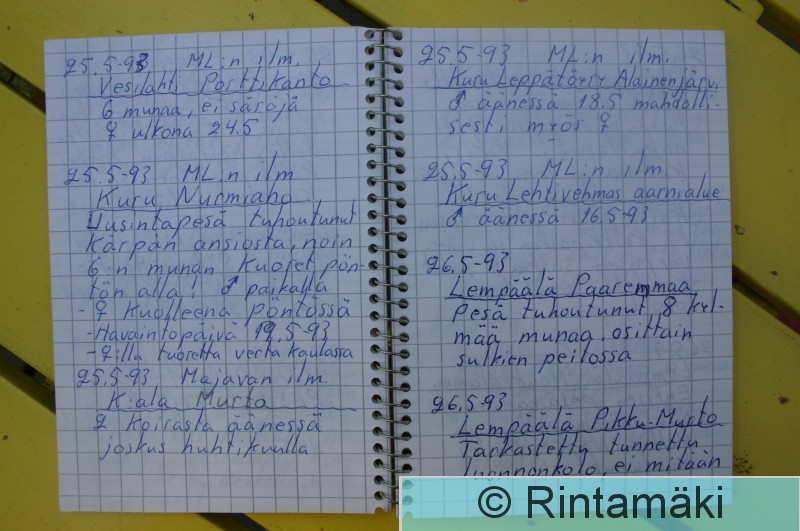 25.5-93 ML:n ilm.
Vesilahti Porttikanto
6 munaa, ei säröjä
♀ ulkona 24.5
25.5-93 ML:n ilm
Kuru Nurmiaho
Uusintapesä tuhoutunut
Kärpän ansiosta, noin
6:n munan kuoret pön-
tön alla! ♂ paikalla
- ♀ kuolleena pöntössä
- Havaintopäivä 19.5-93
- ♀:llä tuoretta verta kaulassa
25.5-93 Majavan ilm.
K:ala Murto
2 koirasta äänessä
joskus huhtikuulla
25.5-93 ML:n ilm.
Kuru Leppätörry Alainenjärv.
♂ äänessä 18.5 mahdolli-
sesti myös ♀
25.5-93 ML:n ilm.
Kuru Lehtivehmas aarnialue
♂ äänessä 16.5-93
26.5-93
Lempäälä Paaremmaa
Pesä tuhoutunut, 8 kyl-
mää munaa osittain
sulkien peitossa
26.5-93
Lempäälä Pikku-Murto
Tarkastettu tunnettu
luonnonkolo, ei mitään
© Rintamäki